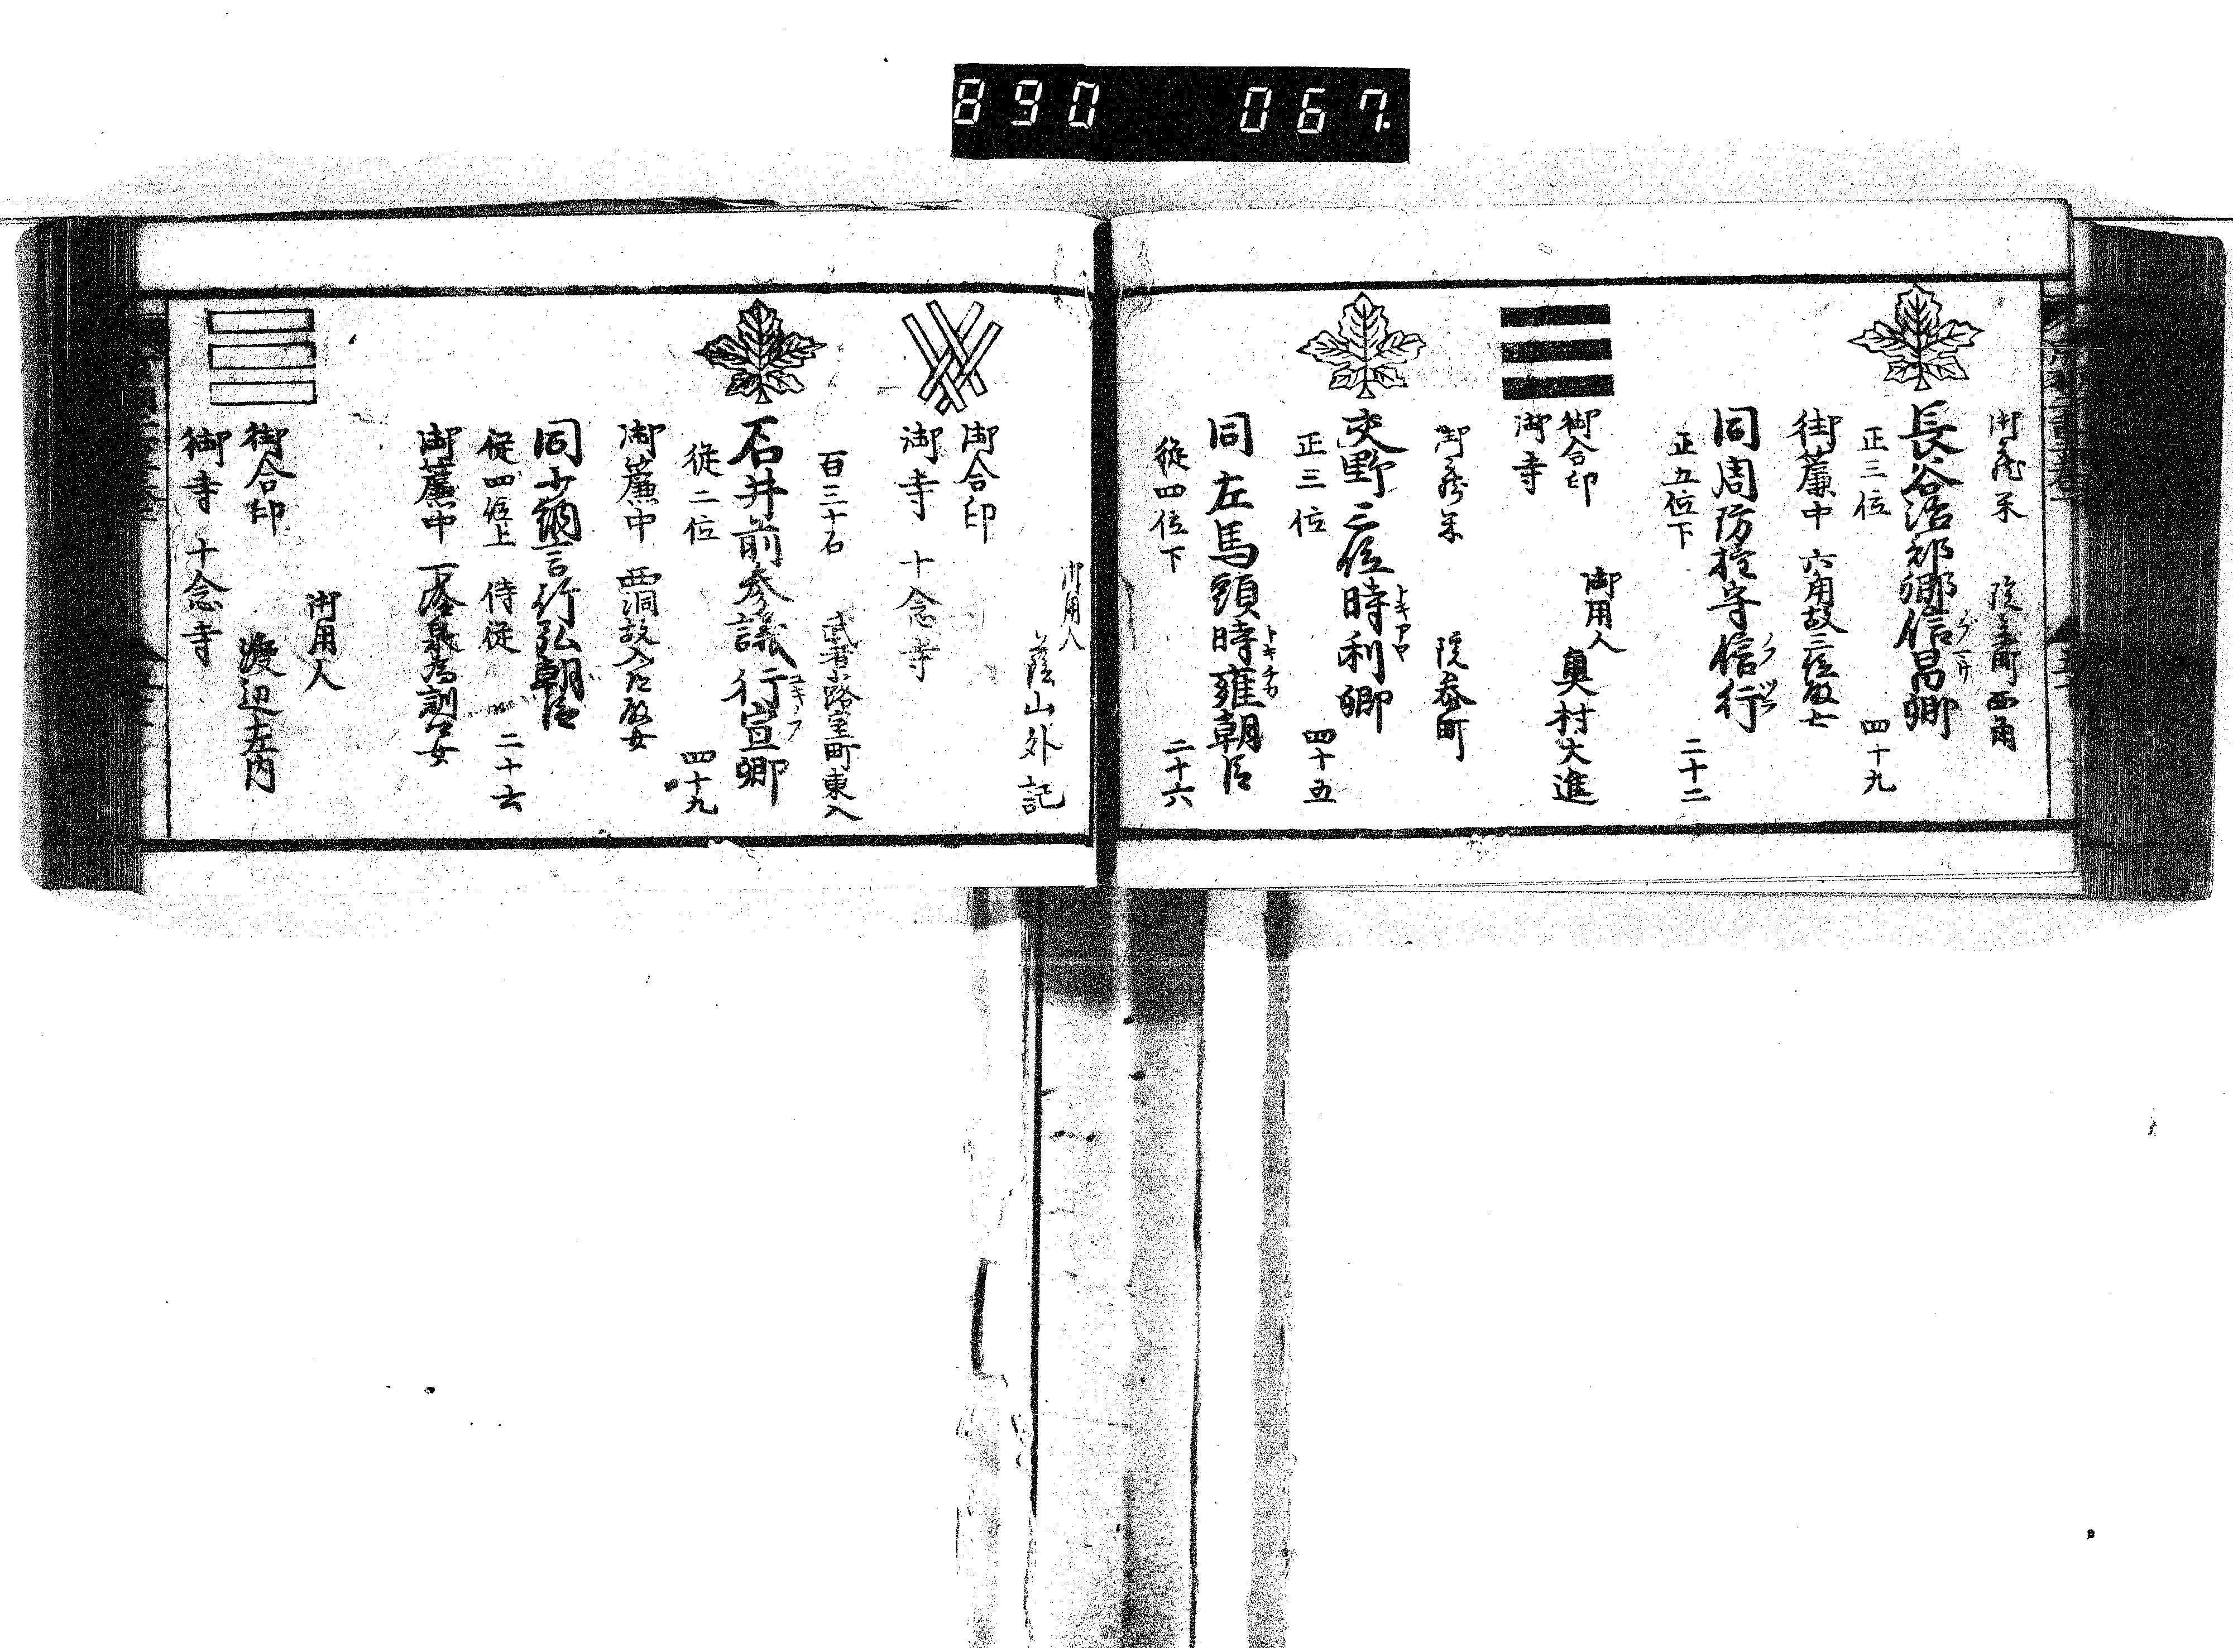 890 067
御蔵米 院参町西角
長谷治部卿信昌卿
正三位 四十九
御簾中 六角故三位殿七
同周防権守信行
正五位下 二十二
御用人
奥村大進
御合印
御寺
御蔵米 院参町
交野三位時利卿
トキアヤ
正三位 四十五
同左馬頭時雍朝臣
トキチカ
従四位下 二十六
御用人
蔭山外記
御合印
御寺 十念寺
百三十石 武者小路室町東入
石井前参議行宣卿
従二位 四十九
御簾中 西洞故入道殿女
同少納言行弘朝臣
従四位上 侍従 二十六
御簾中
御用人
渡辺左内
御合印
御寺 十念寺